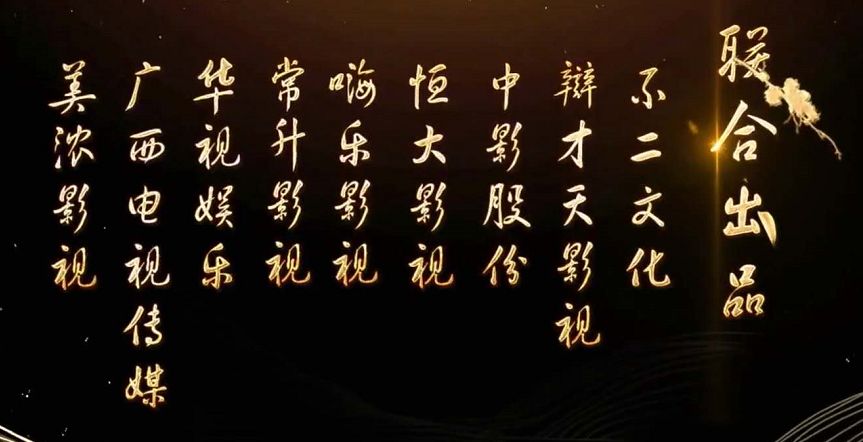 联合出品
不二文化
辩才天影视
中影股份
恒大影视
嗨乐影视
常升影视
华视娱乐
广西电视传媒
美浓影视